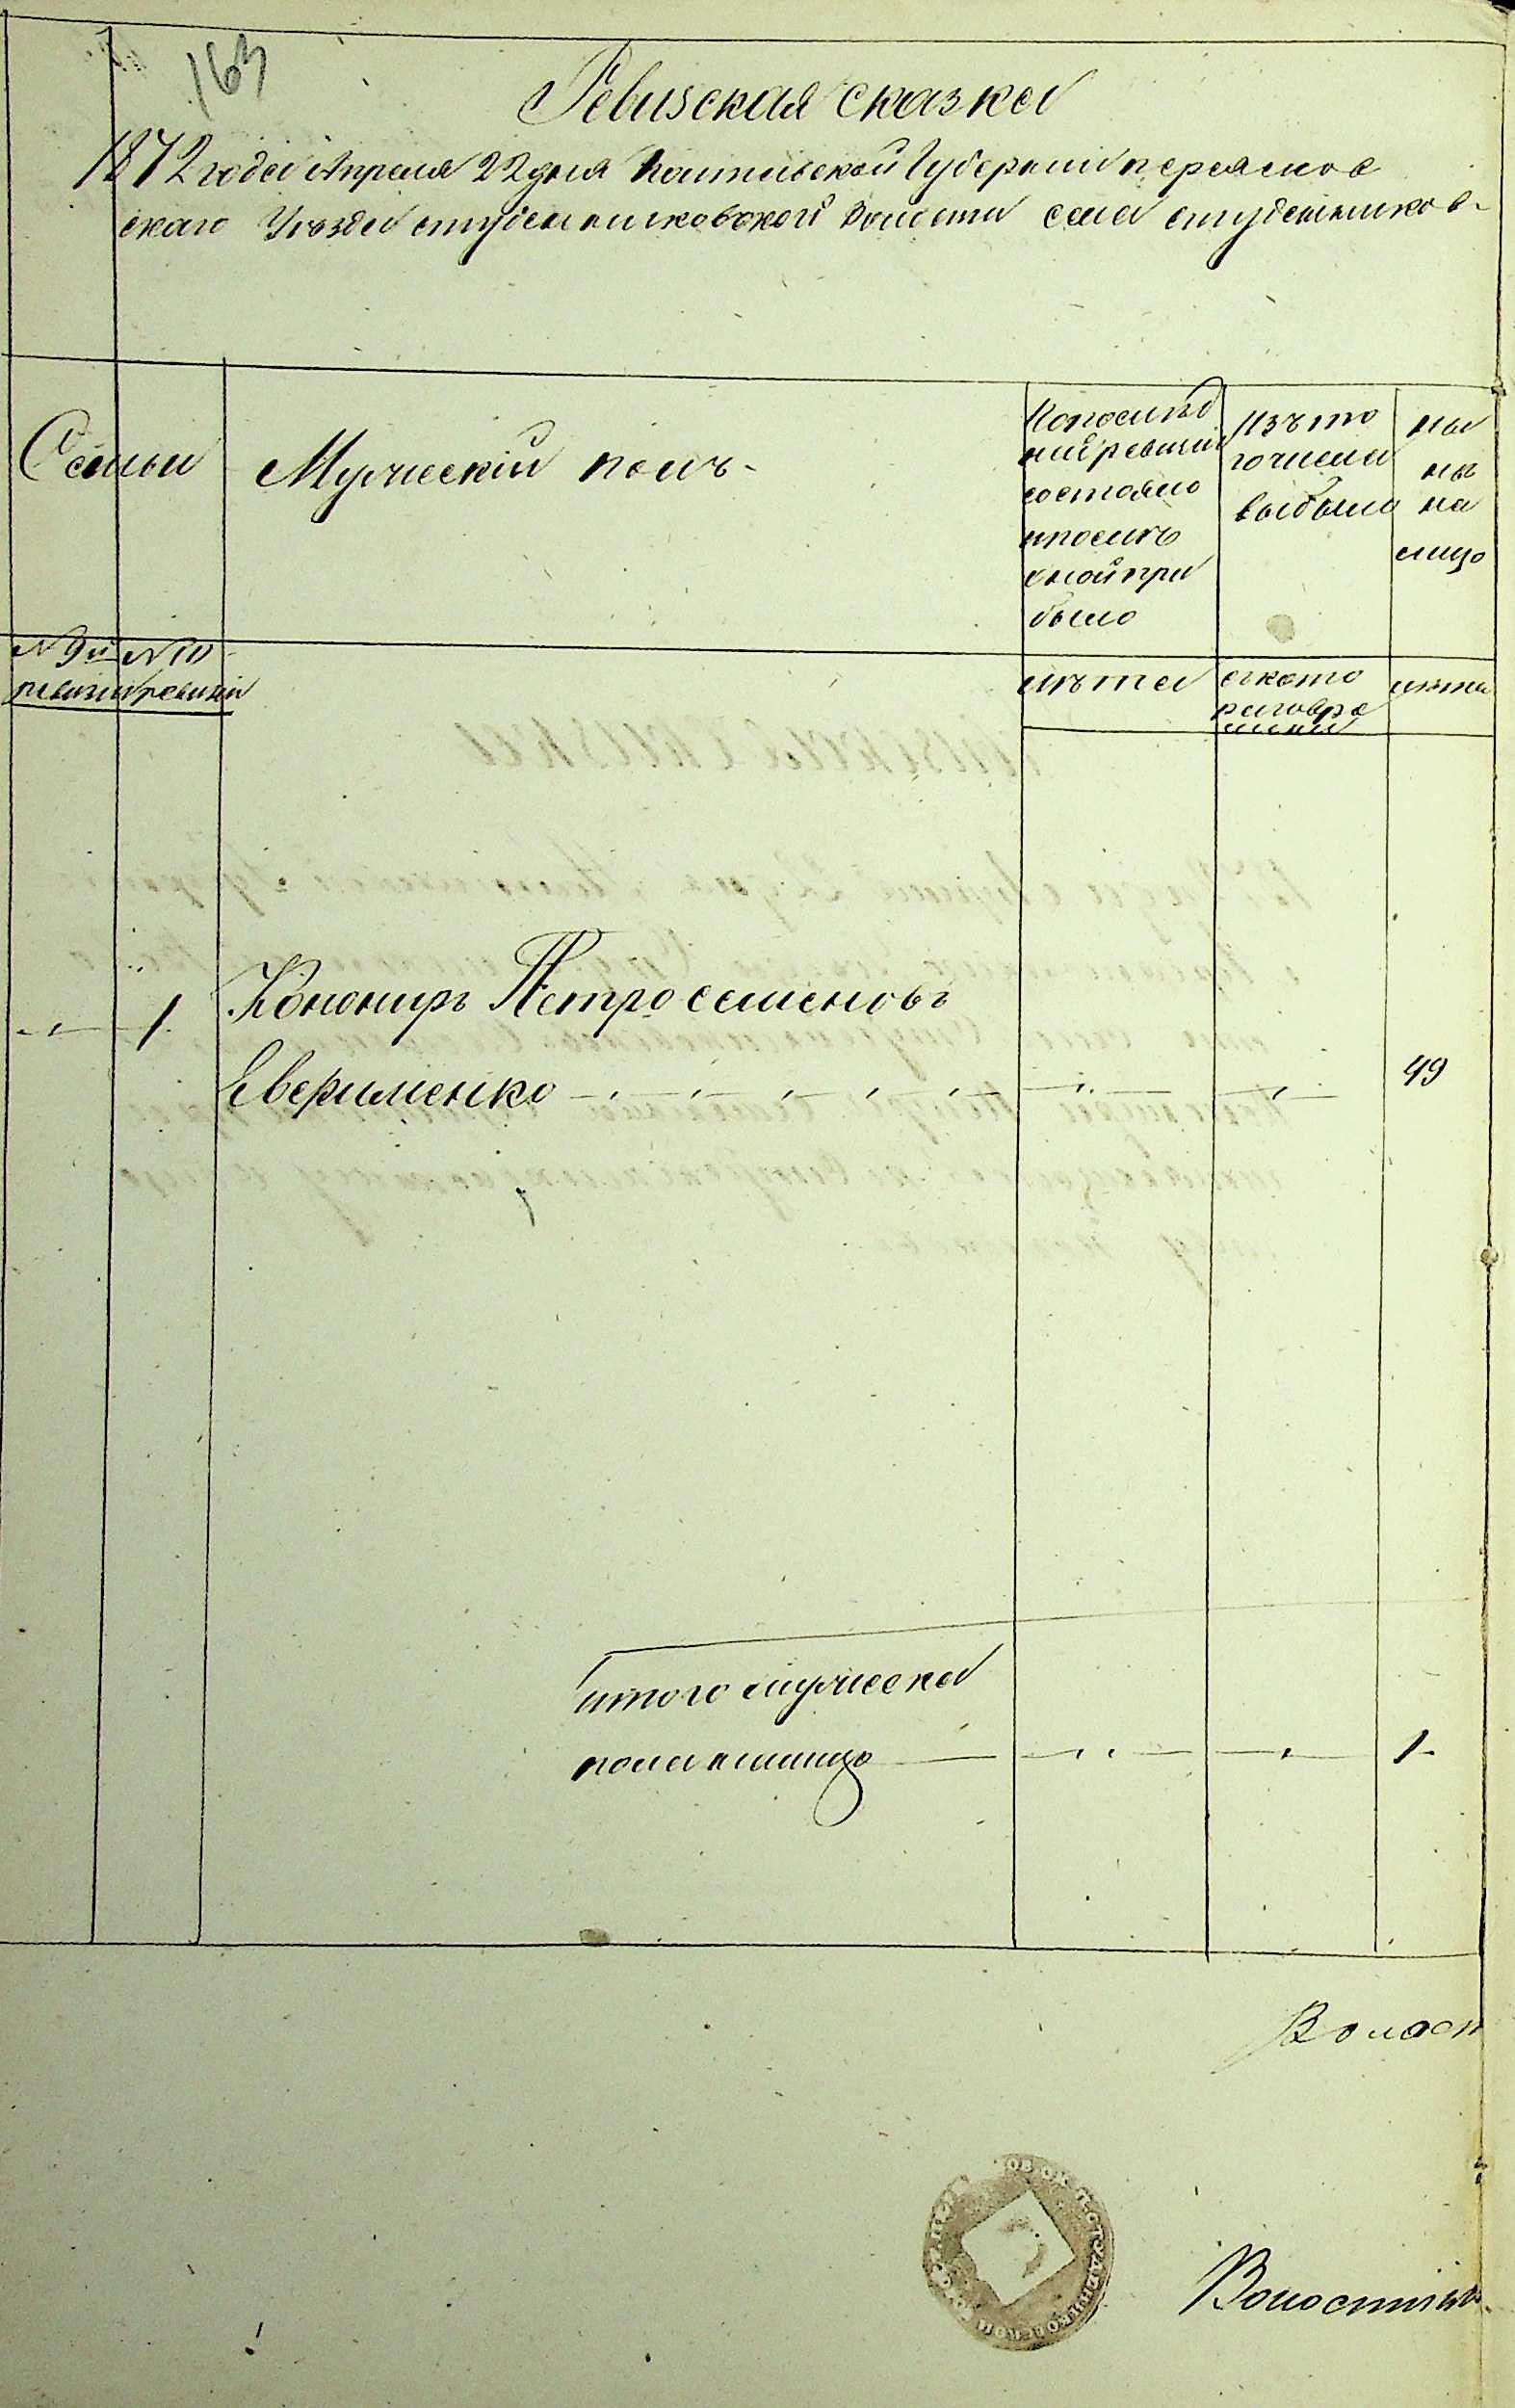 163
Ревизская сказка
1872 года Апреля 22 дня Полтавской Губернии переяслов
скаго Уѣзда студенниковской волости села студенников-
Семьи
Мужескій полъ-
Попослѣд
ней ревизіи
состояло
ипослѣ
оной при
было
Изъ то
гочисла
выбыло
ны
нѣ
на
лицо
№ 9й
ревизіи
№ 10
ревизіи
лѣта
ското
раговре
мени
лѣта
1
Кононир Петро семеновъ
Евфименко
49
итого мужеска
пола налицо
1
Волост
Волостной